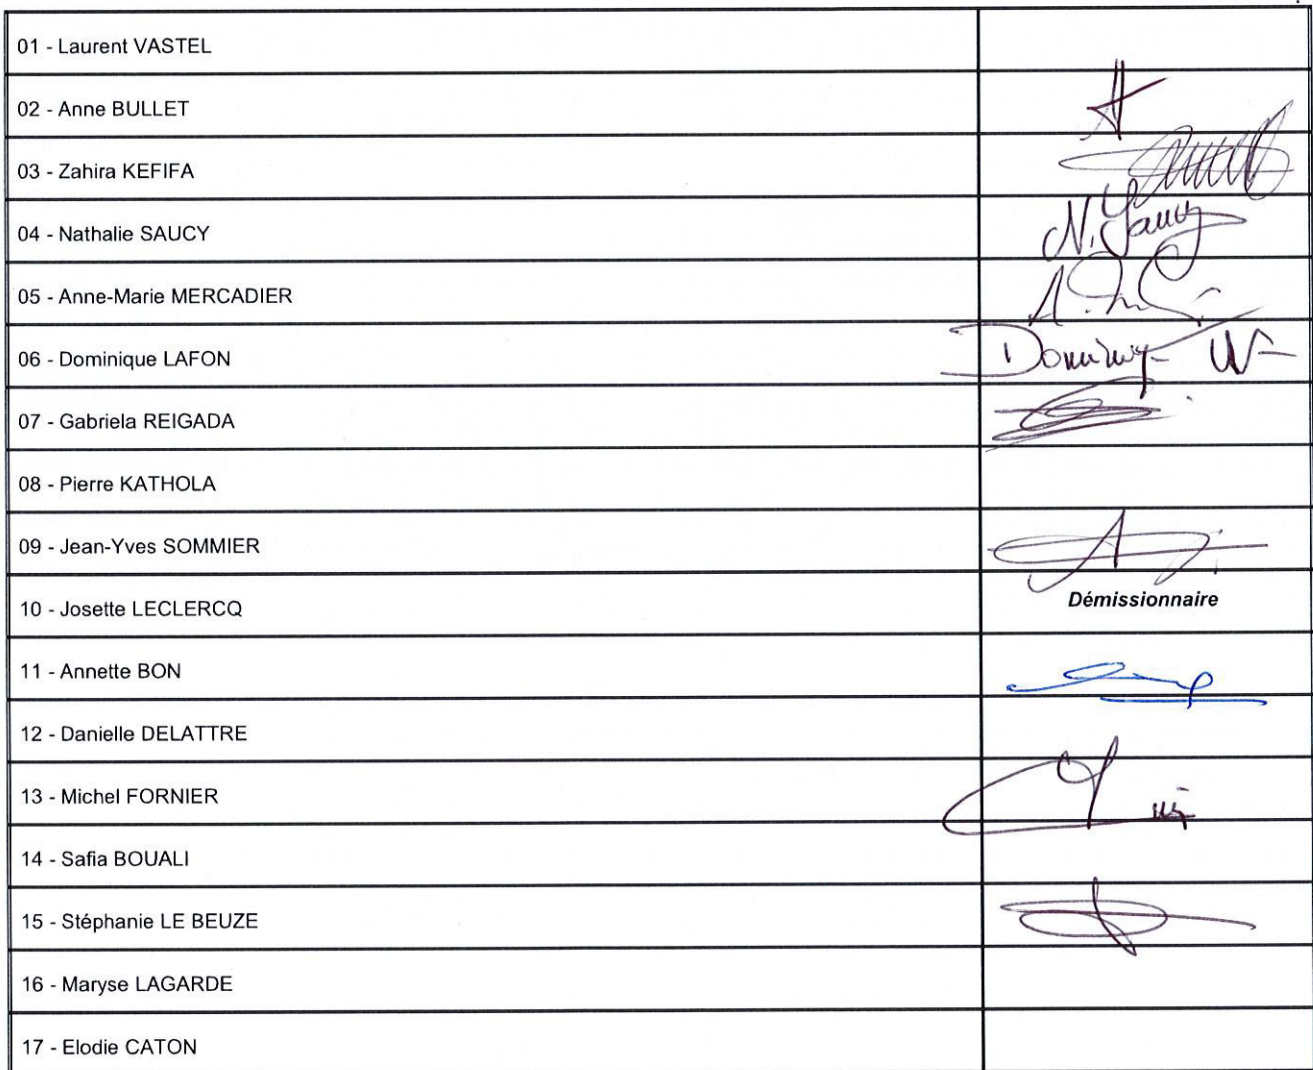 01 - Laurent VASTEL
02 - Anne BULLET
03 - Zahira KEFIFA
04 - Nathalie SAUCY
N. Saucy
05 - Anne-Marie MERCADIER
06 - Dominique LAFON
07 - Gabriela REIGADA
08 - Pierre KATHOLA
09 - Jean-Yves SOMMIER
10 - Josette LECLERCQ
Démissionnaire
11 - Annette BON
12 - Danielle DELATTRE
13 - Michel FORNIER
14 - Safia BOUALI
15 - Stéphanie LE BEUZE
16 - Maryse LAGARDE
17 - Elodie CATON